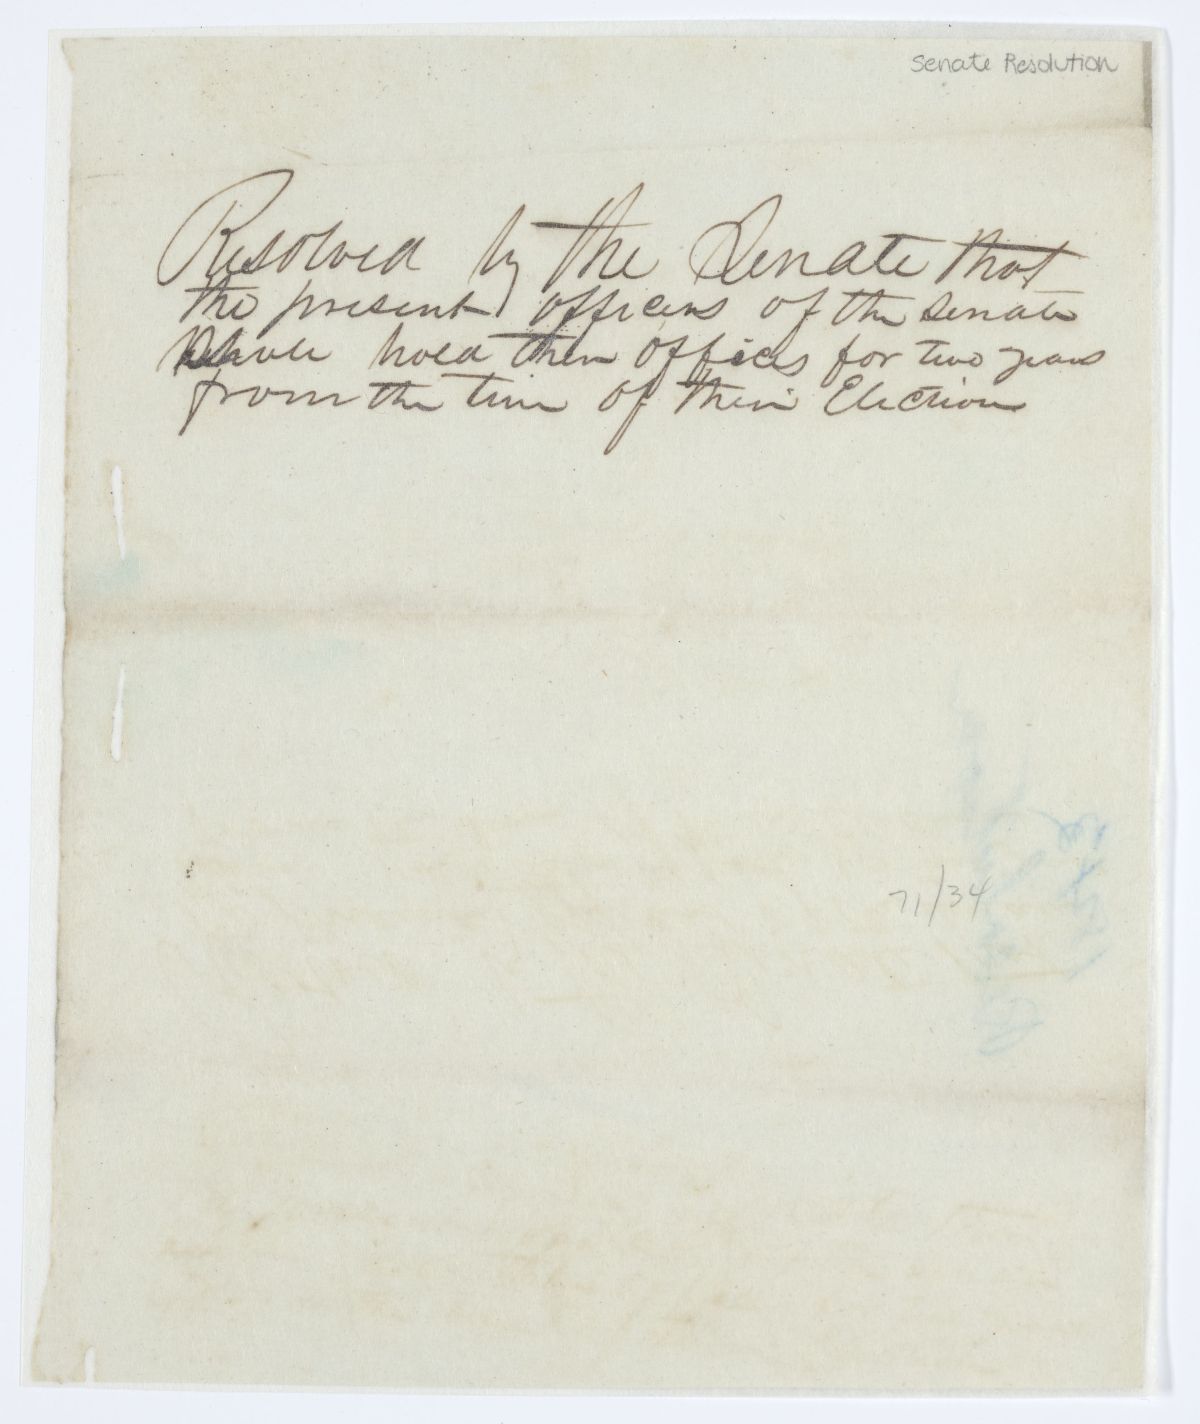 Senate Resolution
Resolved by the Senate that
the present officers of the senate
shall hold their offices for two years
from the time of their Election
71/34